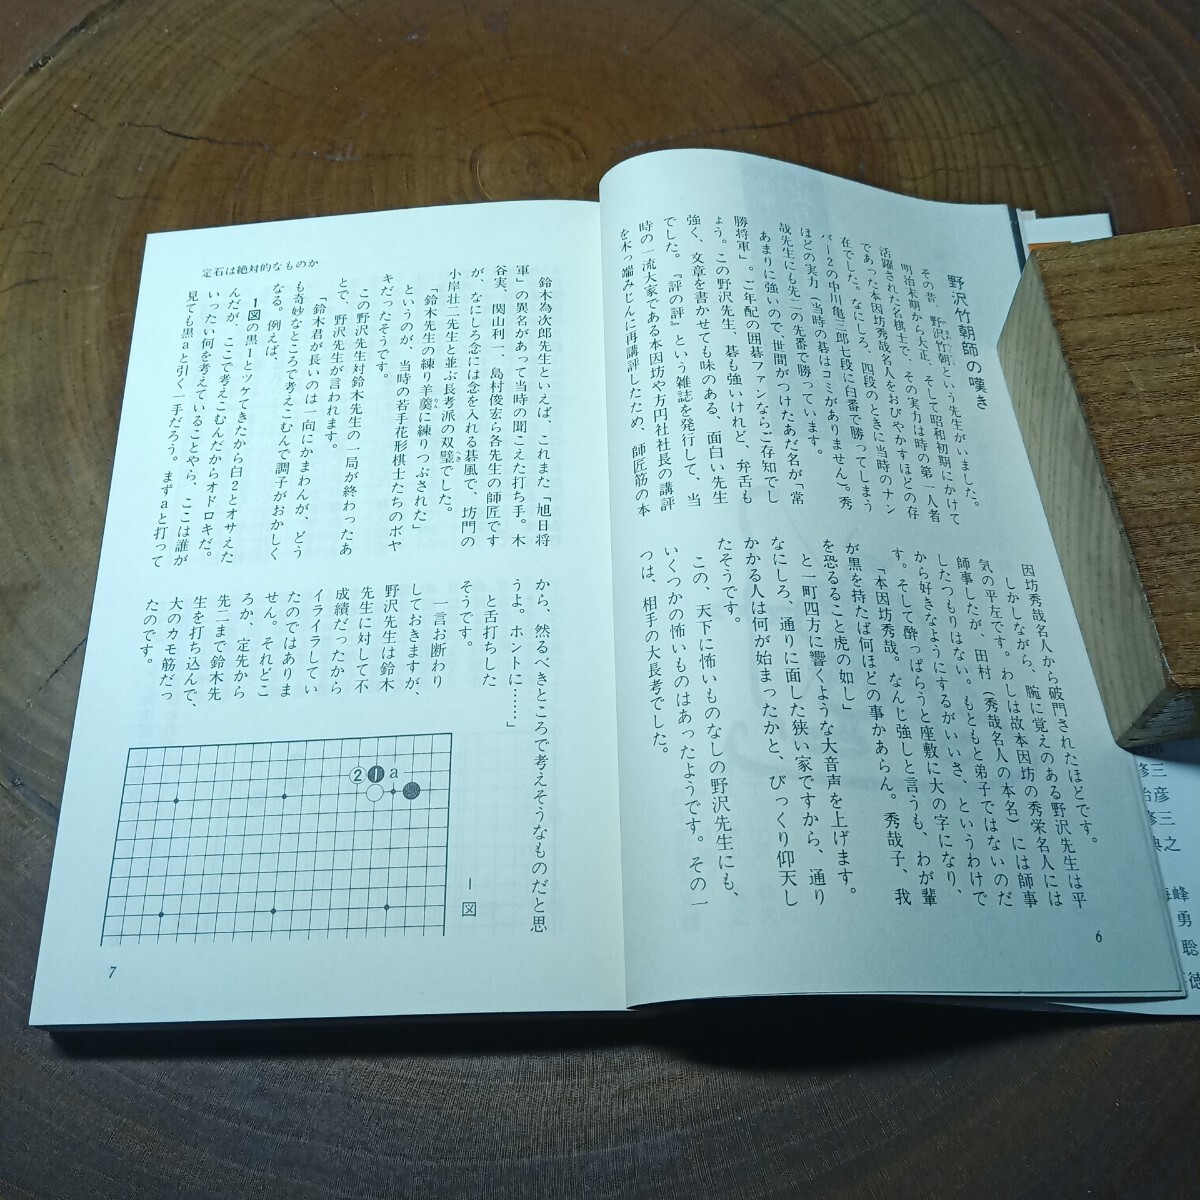 野沢竹朝師の嘆き
その昔、野沢竹朝という先生がいました。
明治末期から大正、そして昭和初期にかけて
活躍された名棋士で、その実力は時の第一人者
であった本因坊秀哉名人をおびやかすほどの存
在でした。なにしろ、四段のときに当時のナン
バー2の中川亀三郎七段に白番で勝ってしまう
ほどの実力（当時の碁はコミがありません）。秀
哉先生にも先二の先番で勝っています。
あまりに強いので、世間がつけたあだ名が「常
勝将軍」。ご年配の囲碁ファンならご存知でし
ょう。この野沢先生、碁も強いけれど、弁舌も
強く、文章を書かせても味のある、面白い先生
でした。『評の評』という雑誌を発行して、当
時の一流大家である本因坊や方円社社長の講評
を木っ端みじんに再講評したため、師匠筋の本
因坊秀哉名人から破門されたほどです。
しかしながら、腕に覚えのある野沢先生は平
気の平左です。わしは故本因坊の秀栄名人には
師事したが、田村（秀哉名人の本名）には師事
したつもりはない。もともと弟子ではないのだ
から好きなようにするがいいさ、というわけで
す。そして酔っぱらうと座敷に大の字になり、
「本因坊秀哉。なんじ強しと言うも、わが輩
が黒を持たば何ほどの事かあらん。秀哉子、我
を恐るること虎の如し」
と一町四方に響くような大音声を上げます。
なにしろ、通りに面した狭い家ですから、通り
かかる人は何が始まったかと、びっくり仰天し
たそうです。
この、天下に怖いものなしの野沢先生にも、
いくつかの怖いものはあったようです。その一
つは、相手の大長考でした。
6
定石は絶対的なものか
鈴木為次郎先生といえば、これまた「旭日将
軍」の異名があって当時の聞こえた打ち手。木
谷実、関山利一、島村俊宏ら各先生の師匠です
が、なにしろ念には念を入れる碁風で、坊門の
小岸壮二先生と並ぶ長考派の双璧でした。
「鈴木先生の練り羊羹に練りつぶされた」
というのが、当時の若手花形棋士たちのボヤ
キだったそうです。
この野沢先生対鈴木先生の一局が終わったあ
とで、野沢先生が言われます。
「鈴木君が長いのは一向にかまわんが、どう
も奇妙なところで考えこむんで調子がおかしく
なる。例えば、
1図の黒1とツケてきたから白2とオサえた
んだが、ここで考えこむんだからオドロキだ。
いったい何を考えていることやら、ここは誰が
見ても黒aと引く一手だろう。まずaと打って
から、然るべきところで考えそうなものだと思
うよ。ホントに……」
と舌打ちした
そうです。
一言お断わり
しておきますが、
野沢先生は鈴木
先生に対して不
成績だったから
イライラしてい
たのではありま
せん。それどこ
ろか、定先から
先二まで鈴木先
生を打ち込んで、
大のカモ筋だっ
たのです。
1図
2
1
a
7
修三
治彦
修三
典之
海峰
勇
聡
徳